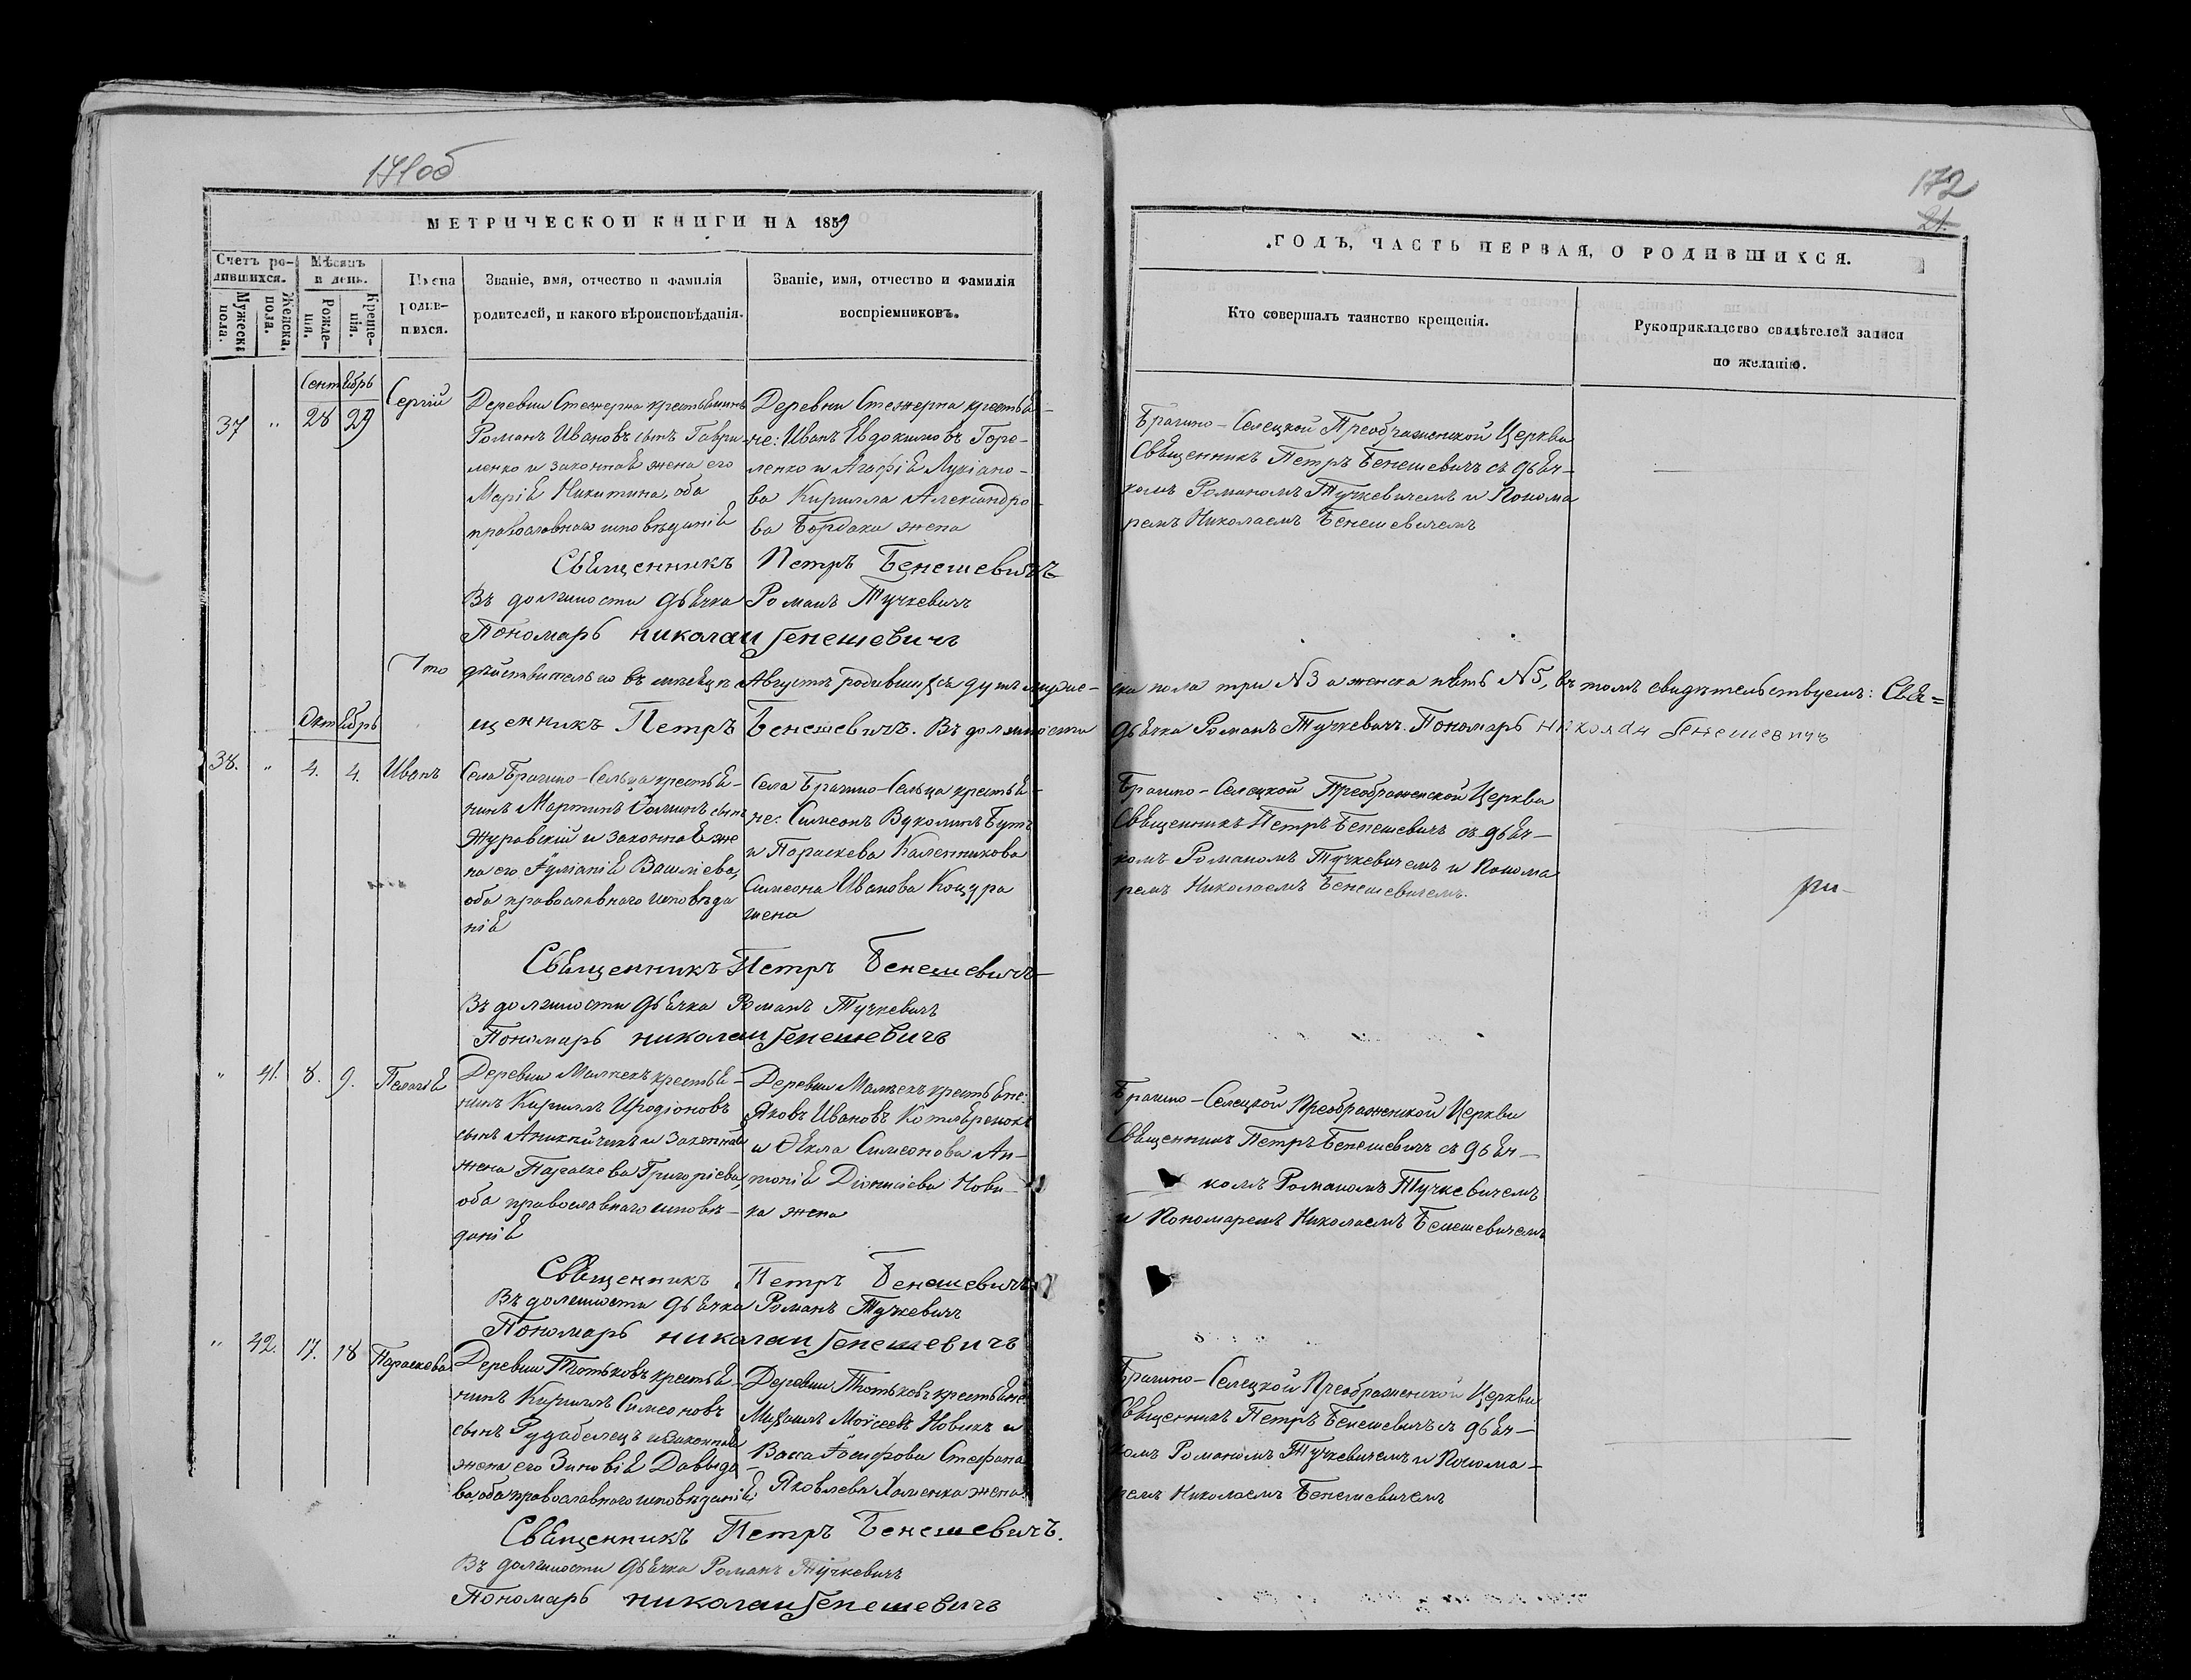 171 об
МЕТРИЧЕСКОЙ КНИГИ НА 1859
Счетъ ро-
дившихся.
Мужеска
пола.
Женска.
пола.
Мѣсяцъ
и день.
Рожде-
нія.
Креще-
нія.
Имена
родив-
шихся.
Званіе, имя, отчество и фамилія
родителей, и какого вѣроисповѣданія.
Званіе, имя, отчество и фамилія
воспріемниковъ.
Сентябрь
37 " 28 29 Сергій
Деревни Стежерна крестьянинъ
Романъ Ивановъ сынъ Гаври-
ленко и законная жена его
Марія Никитина, оба
православнаго исповѣданія
Деревни Стежерна крестья-
не: Иванъ Евдокимовъ Горе-
ленко и Агафія Лукіано-
ва Кирилла Александро
ва Бордака жена
Священникъ Петръ Бенешевичъ
Въ должности дьячка Романъ Тучкевичъ
Пономарь Николай Бенешевичъ
Что дѣйствительно въ мѣсяцѣ Августѣ родившихся душъ мужес-
щенникъ Петръ Бенешевичъ. Въ должности
Октябрь
38. " 4. 4. Иванъ
Села Брагино-Сельца крестья-
нинъ Мартинъ сынъ
Журавскій и законная же
на его Іуліанія Васильева,
оба православнаго исповѣда
нія
Села Брагино-Сельца крестья-
не: Симеонъ Вуколинъ Бутъ
и Параскева Каленникова
Симеона Иванова Коцура
жена
Священникъ Петръ Бенешевичъ
Въ должности дьячка Романъ Тучкевичъ
Пономарь Николай Бенешевичъ
" 41. 8. 9. Пелагія
Деревни Малпекъ крестья-
нинъ Кириллъ Иродіоновъ
сынъ Аникійчикъ и законная
жена Параскева Григоріева,
оба православнаго исповѣ-
данія
Деревни Малпекъ крестьяне:
Яковъ Ивановъ Котляренокъ
и Ѳекла Симеонова Ан-
тонія Діонисіева Нови-
ка жена
Священникъ Петръ Бенешевичъ
Въ должности дьячка Романъ Тучкевичъ
Пономарь Николай Бенешевичъ
" 42. 17. 18 Параскева
Деревни Тотьковъ крестья-
нинъ Кириллъ Симеоновъ
сынъ Рудобелецъ и законная
жена его Зиновія Давыдо
ва, оба православнаго исповѣданія
Деревни Тотьковъ крестьяне:
Михаилъ Моисеевъ Новикъ и
Васса Іосифова Стефана
Яковлева Хоменка жена
Священникъ Петръ Бенешевичъ.
Въ должности дьячка Романъ Тучкевичъ
Пономарь Николай Бенешевичъ
172
21.
ГОДЪ, ЧАСТЬ ПЕРВАЯ, О РОДИВШИХСЯ.
Кто совершалъ таинство крещенія.
Рукоприкладство свидѣтелей записи
по желанію.
Брагино-Селецкой Преображенской Церкви
Священникъ Петръ Бенешевичъ съ дьяч-
комъ Романомъ Тучкевичемъ и Понома
ремъ Николаемъ Бенешевичемъ
ска пола три №3 а женска пять №5, въ томъ свидѣтельствуемъ: Свя=
дьячка Романъ Тучкевичъ. Пономарь Николай Бенешевичъ
Брагино-Селецкой Преображенской Церкви
Священникъ Петръ Бенешевичъ съ дьяч-
комъ Романомъ Тучкевичемъ и Понома
ремъ Николаемъ Бенешевичемъ.
Брагино-Селецкой Преображенской Церкви
Священникъ Петръ Бенешевичъ съ дьяч-
комъ Романомъ Тучкевичемъ
и Пономаремъ Николаемъ Бенешевичемъ
Брагино-Селецкой Преображенской Церкви
Священникъ Петръ Бенешевичъ съ дьяч-
комъ Романомъ Тучкевичемъ и Понома-
ремъ Николаемъ Бенешевичемъ